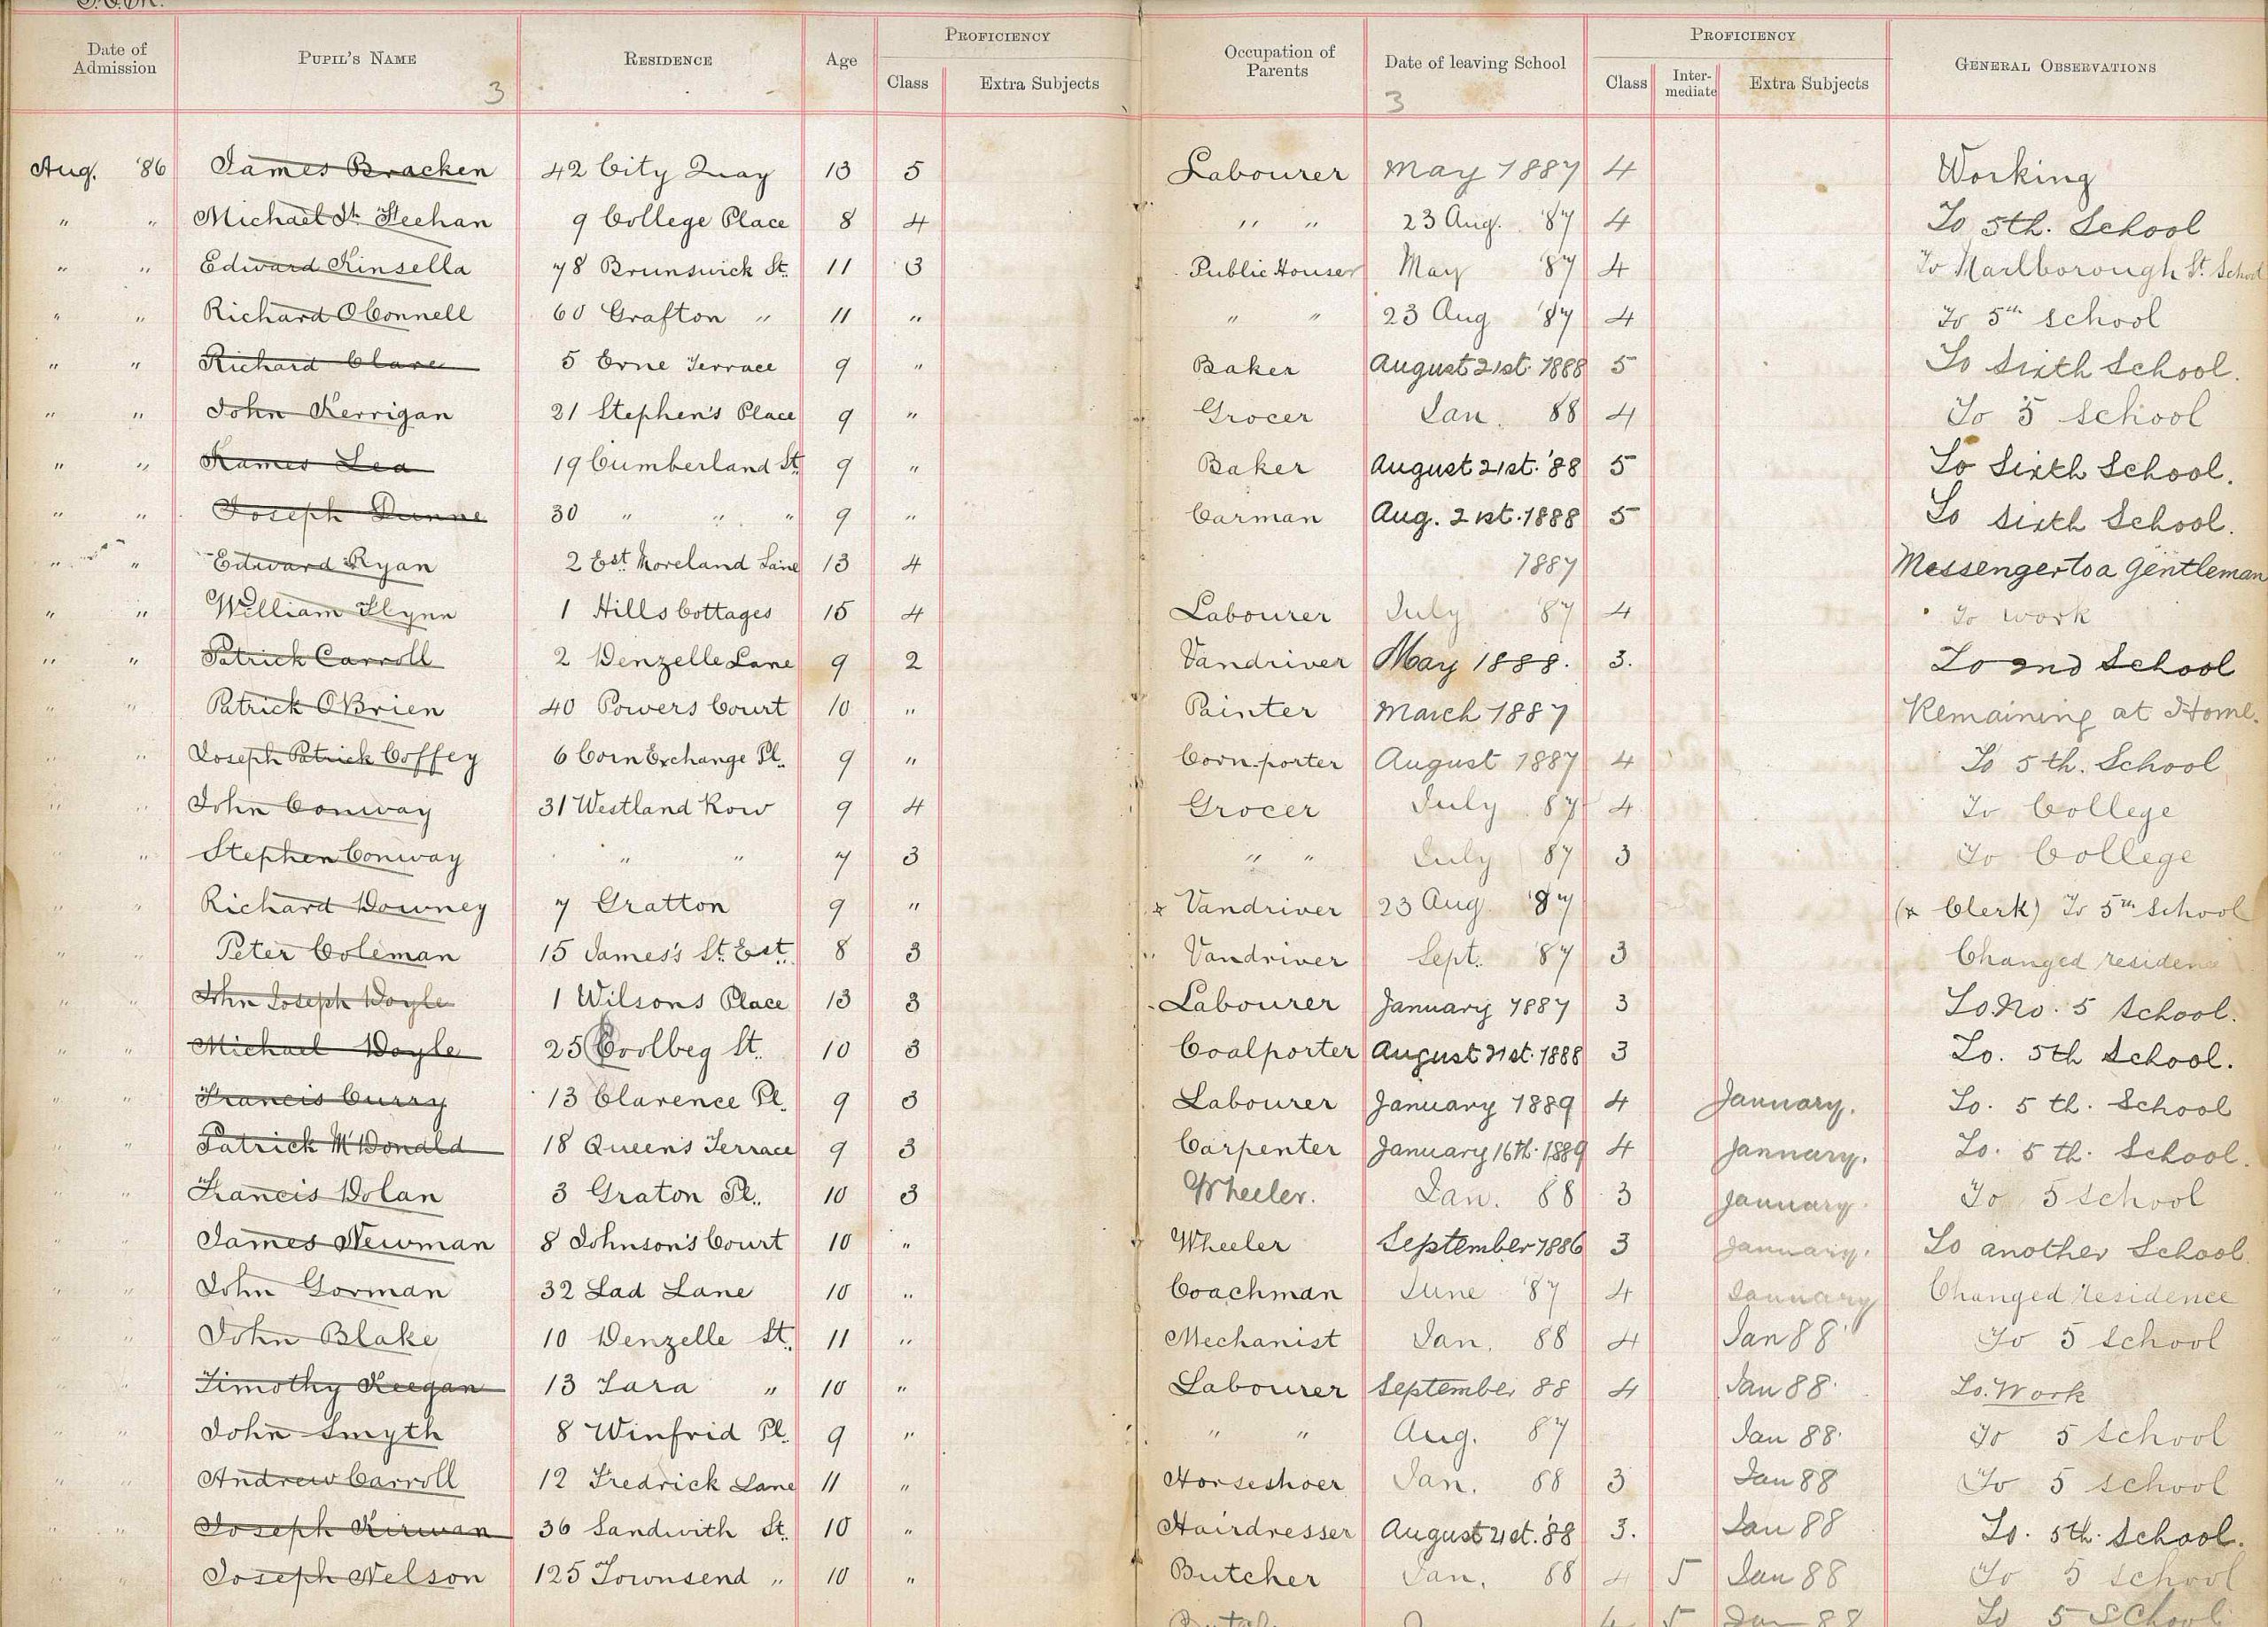 Date of Admission PUPIL'S NAME RESIDENCE Age PROFICIENCY Class Extra Subjects Occupation of Parents Date of leaving School PROFICIENCY Class Inter-mediate Extra Subjects GENERAL OBSERVATIONS
3 3
Aug. '86 James Bracken 42 City Quay 13 5 Labourer May 1887 4 Working
" " Michael Feehan 9 College Place 8 4 " " 23 Aug. '87 4 To 5th. School
" " Edward Kinsella 78 Brunswick St. 11 3 Public House May '87 4 To Marlborough St. School
" " Richard OConnell 60 Grafton " 11 " " " 23 Aug '87 4 To 5th school
" " Richard Clare 5 Erne Terrace 9 " Baker August 21st. 1888 5 To Sixth School.
" " John Kerrigan 21 Stephen's Place 9 " Grocer Jan. 88 4 To 5 school
" " James Lea 19 Cumberland St. 9 " Baker August 21st. '88 5 To Sixth School.
" " Joseph Dunne 30 " " " 9 " Carman Aug. 21st. 1888 5 To Sixth School.
" " Edward Ryan 2 Est. Moreland Lane 13 4 1887 Messenger to a Gentleman
" " William Flynn 1 Hills Cottages 15 4 Labourer July '87 4 To work
" " Patrick Carroll 2 Denzelle Lane 9 2 Vandriver May 1888. 3. To 2nd School
" " Patrick OBrien 40 Powers Court 10 " Painter March 1887 Remaining at Home.
" " Joseph Patrick Coffey 6 Corn Exchange Pl. 9 " Corn-porter August 1887 4 To 5th. School
" " John Conway 31 Westland Row 9 4 Grocer July 87 4 To College
" " Stephen Conway " " 7 3 " " July 87 3 To College
" " Richard Downey 7 Gratton 9 " x Vandriver 23 Aug '87 (x Clerk) To 5th School
" " Peter Coleman 15 James's St. Est. 8 3 Vandriver Sept. '87 3 Changed residence
" " John Joseph Doyle 1 Wilsons Place 13 3 Labourer January 1887 3 To No. 5 School.
" " Michael Doyle 25 Coolbeg St. 10 3 Coalporter August 21st. 1888 3 To. 5th School.
" " Francis Curry 13 Clarence Pl. 9 3 Labourer January 1889 4 January. To. 5th. School
" " Patrick McDonald 18 Queen's Terrace 9 3 Carpenter January 16th. 1889 4 January. To. 5th. School.
" " Francis Dolan 3 Graton Pl. 10 3 Wheeler. Jan. 88 3 January. To 5 School
" " James Newman 8 Johnson's Court 10 " Wheeler September 1886 3 January. To another School.
" " John Gorman 32 Lad Lane 10 " Coachman June '87 4 January Changed residence
" " John Blake 10 Denzelle St. 11 " Mechanist Jan. 88 4 Jan 88 To 5 School
" " Timothy Keegan 13 Tara " 10 " Labourer September 88 4 Jan 88 To. Work
" " John Smyth 8 Winfrid Pl. 9 " " " Aug. 87 Jan 88 To 5 School
" " Andrew Carroll 12 Fredrick Lane 11 " Horseshoer Jan. 88 3 Jan 88 To 5 school
" " Joseph Kirwan 36 Sandwith St. 10 " Hairdresser August 21st. '88 3. Jan 88 To. 5th. School.
" " Joseph Nelson 125 Townsend " 10 " Butcher Jan. 88 4 5 Jan 88 To 5 School
4 5 Jan 88 To 5 School